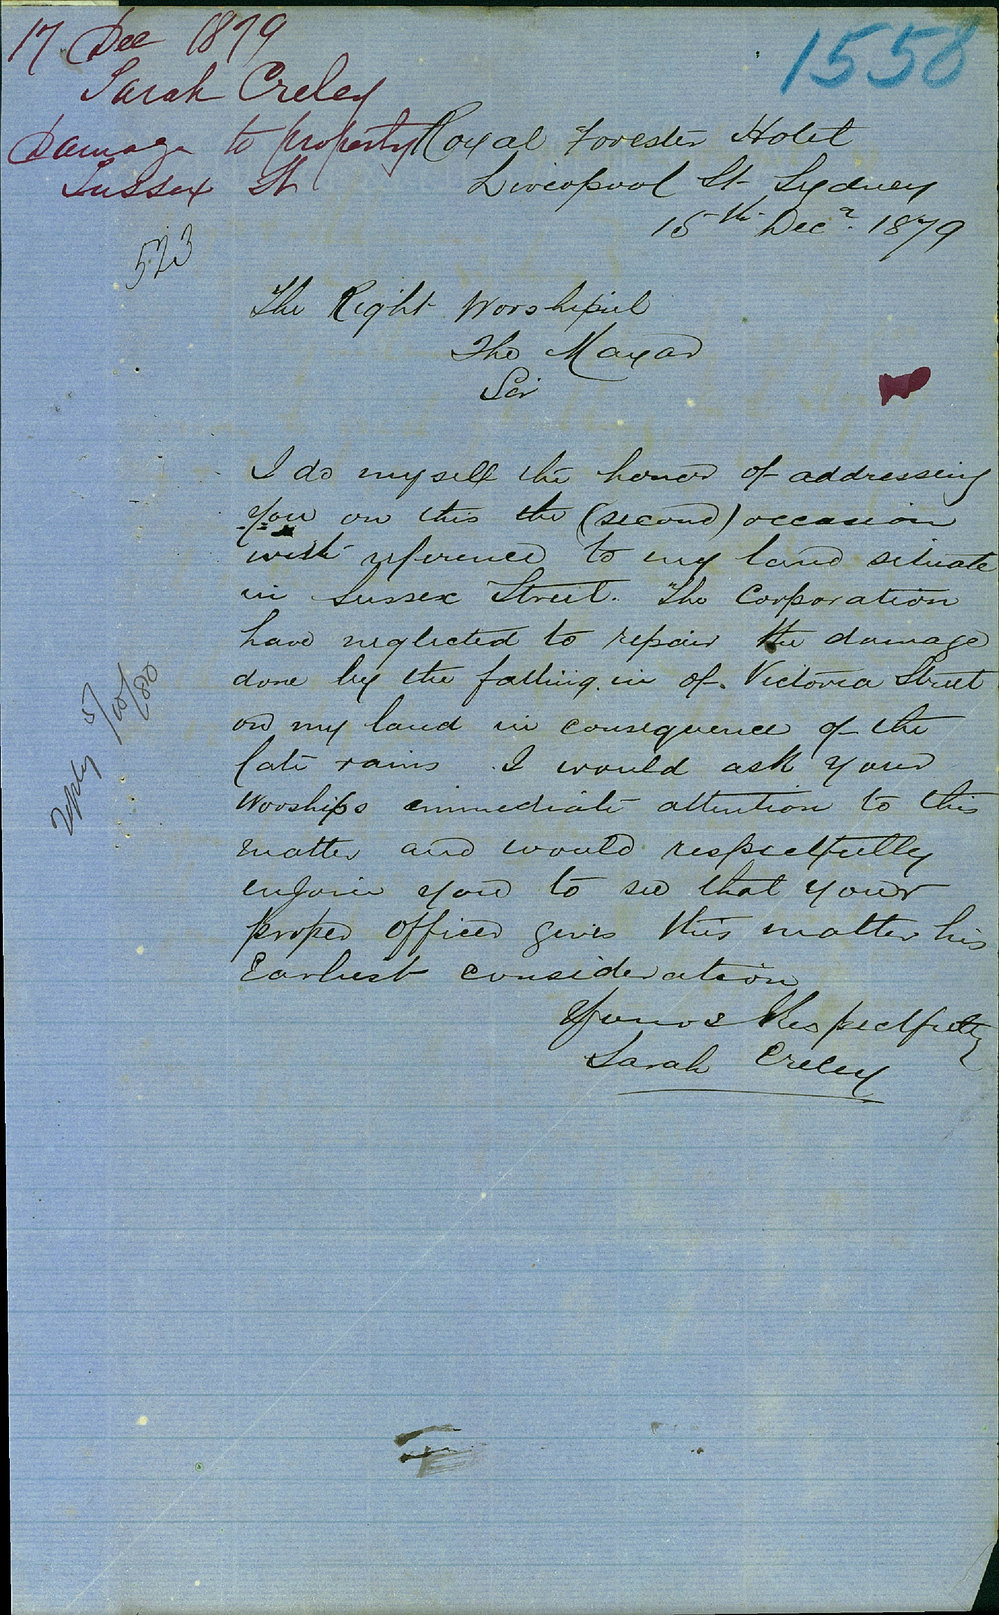 17 Dec 1879
Sarah Creley
Damage to property
Sussex St
1558
Royal Forester Hotel
Liverpool St Sydney
15th Decr. 1879
523
The Right Worshipful
The Mayor
Sir
I do myself the honor of addressing
you on this the (second) occasion
with reference to my land situate
in Sussex Street. The Corporation
have neglected to repair the damage
done by the falling in of Victoria Street
on my land in consequence of the
late rains. I would ask your
Worships immediate attention to this
matter and would respectfully
enjoin you to see that your
proper officer gives this matter his
Earliest consideration
Yours Respectfully
Sarah Creley
reply